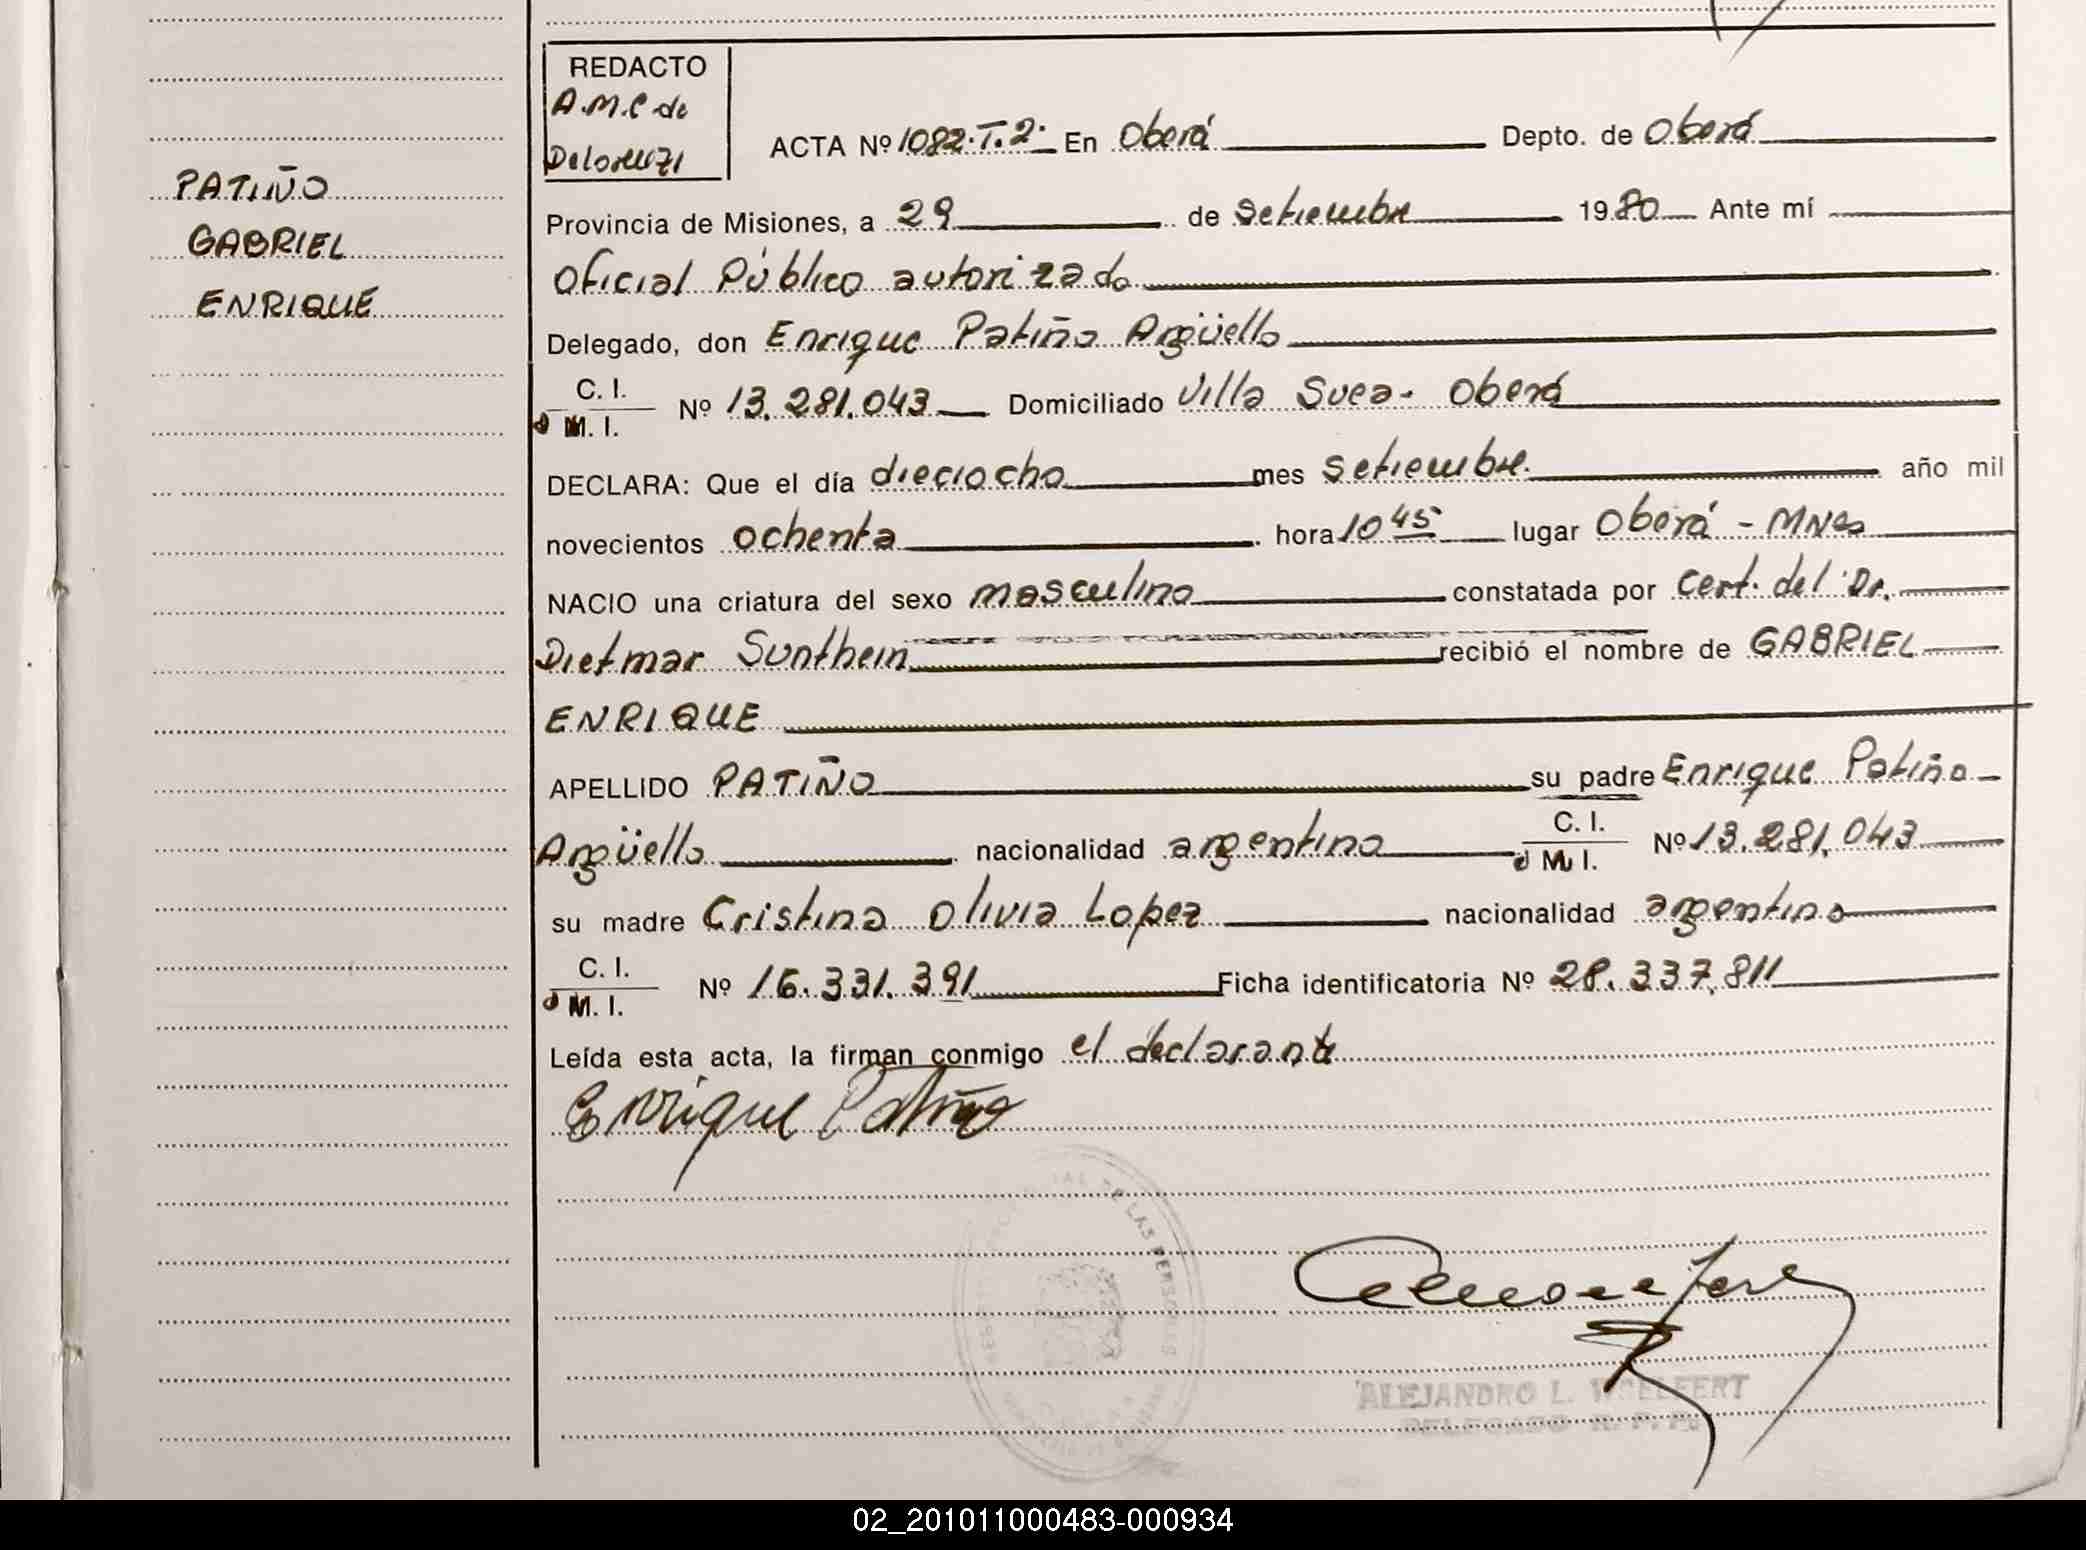 REDACTO
A.M.C de
Delorenzi
ACTA Nº 1082.T.2. En Oberá Depto. de Oberá
PATIÑO
GABRIEL
ENRIQUE
Provincia de Misiones, a 29 de Setiembre 1980 Ante mí
Oficial Público autorizado
Delegado, don Enrique Patiño Argüello
C. I.
d M. I. Nº 13.281.043 Domiciliado Villa Svea - Oberá
DECLARA: Que el día dieciocho mes Setiembre. año mil
novecientos ochenta hora 10 45 lugar Oberá - MNes
NACIO una criatura del sexo masculino constatada por Cert. del Dr.
Dietmar Sunthein recibió el nombre de GABRIEL
ENRIQUE
APELLIDO PATIÑO su padre Enrique Patiño
Argüello nacionalidad argentino C. I.
d M. I. Nº 13.281.043
su madre Cristina Olivia Lopez nacionalidad argentina
C. I.
d M. I. Nº 16.331.391 Ficha identificatoria Nº 28.337.811
Leída esta acta, la firman conmigo el declarante
Enrique Patiño
DE LAS PERSONAS
ALEJANDRO L. WOELFERT
DELEGADO R. P. P.
02_201011000483-000934